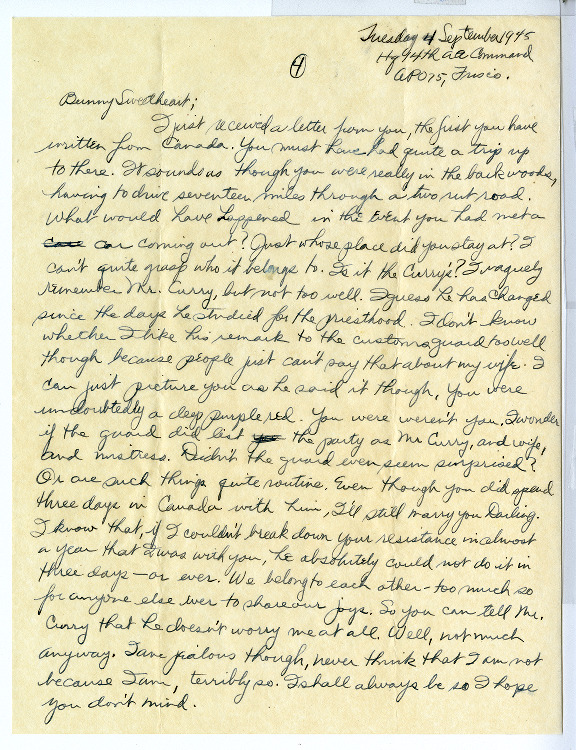 Tuesday 4 September 1945
Hq 94th AA Command
APO 75, Frisco.
4
Bunny Sweetheart;
I just received a letter from you, the first you have
written from Canada. You must have had quite a trip up
to there. It sounds as though you were really in the back woods,
having to drive seventeen miles through a two rut road.
What would have happened in the event you had met a
car coming out? Just whose place did you stay at? I
can't quite grasp who it belongs to. Is it the Curry's? I vaguely
remember Mr. Curry, but not too well. I guess he has changed
since the days he studied for the priesthood. I don't know
whether I like his remark to the customs guard too well
though because people just can't say that about my wife. I
can just picture you as he said it though, you were
undoubtedly a deep purple red. You were weren't you. I wonder
if the guard did list the party as Mr Curry, and wife,
and mistress. Didn't the guard even seem surprised?
Or are such things quite routine. Even though you did spend
three days in Canada with him, I'll still marry you Darling.
I know that, if I couldn't break down your resistance in almost
a year that I was with you, he absolutely could not do it in
three days - or ever. We belong to each other - too much so
for anyone else ever to share our joys. So you can tell Mr.
Curry that he doesn't worry me at all. Well, not much
anyway. I am jealous though, never think that I am not
because I am, terribly so. I shall always be so I hope
you don't mind.